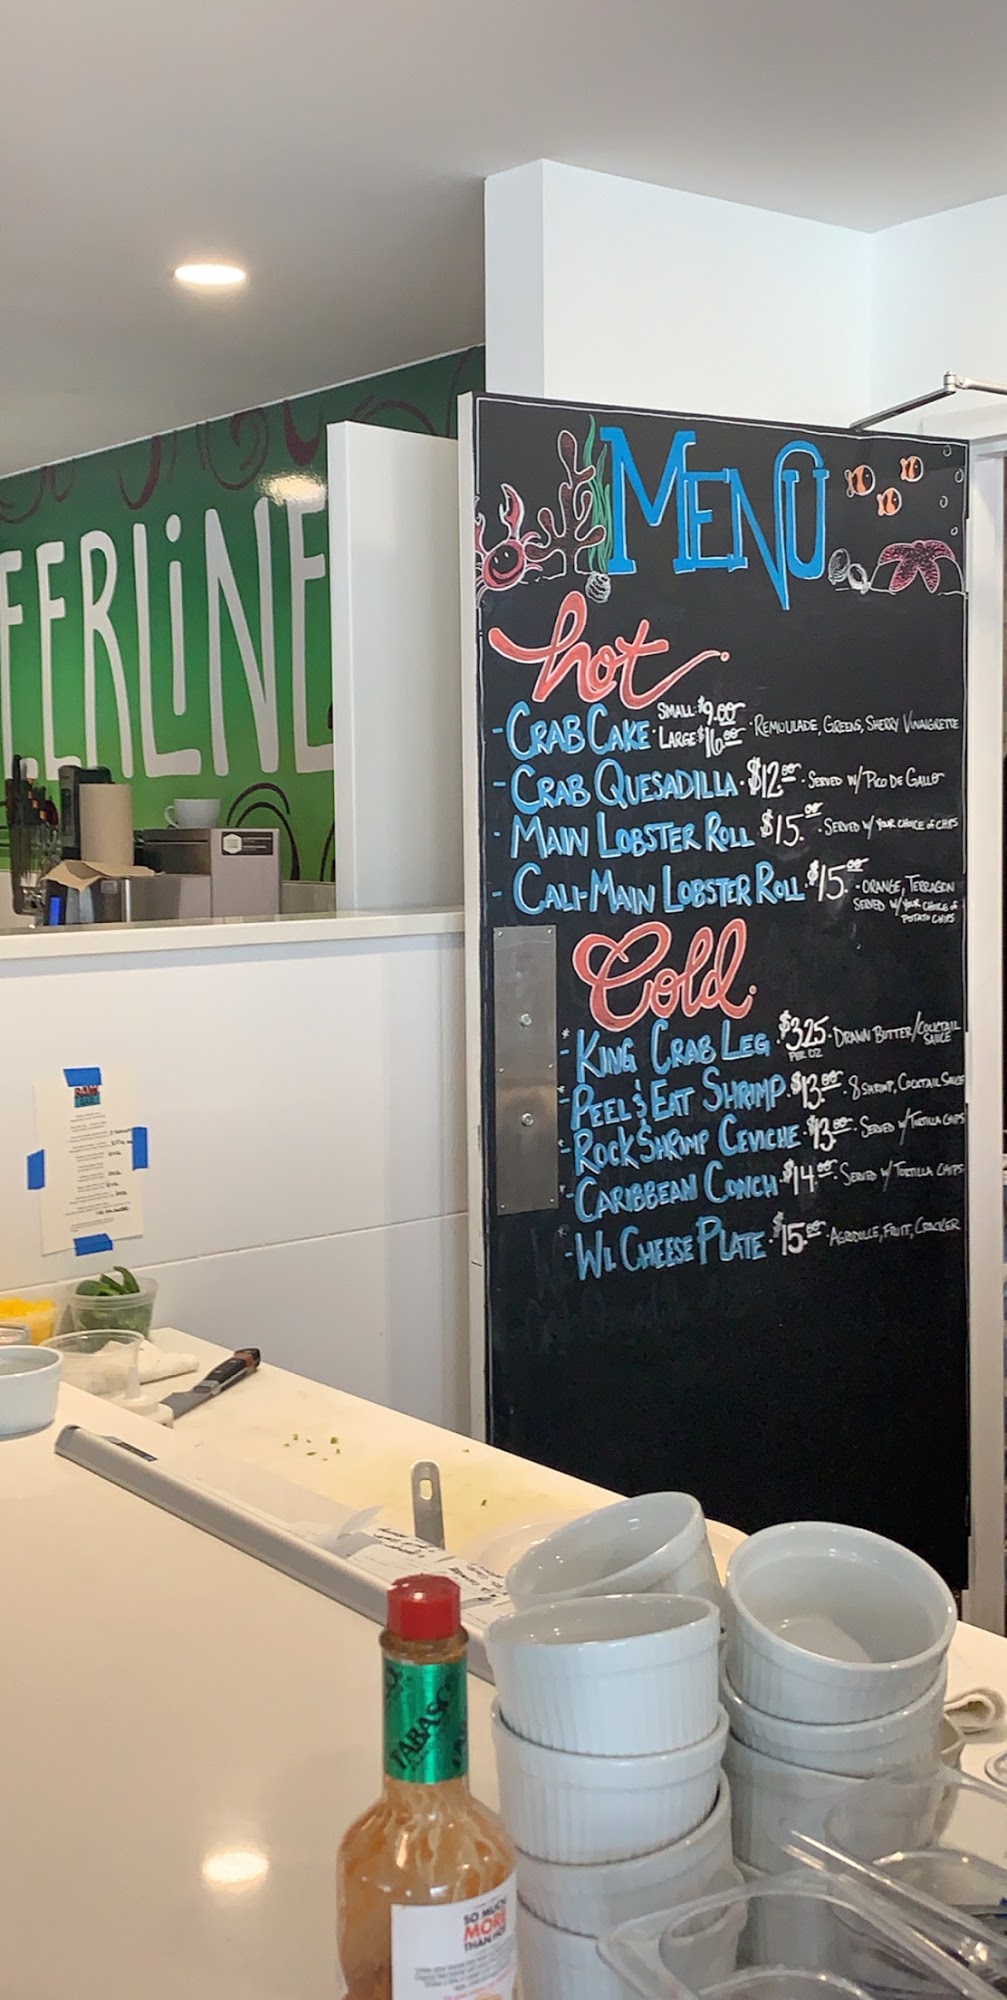 EERLiNE
MENU
hot
- CRAB CAKE · SMALL · $9.00 · REMOULADE, GREENS, SHERRY VINAIGRETTE
LARGE · $16.00
- CRAB QUESADILLA · $12.00 · SERVED W/ PICO DE GALLO
- MAIN LOBSTER ROLL $15.00 · SERVED W/ YOUR CHOICE of CHIPS
- CALI-MAIN LOBSTER ROLL · $15.00 · ORANGE, TERRAGON
SERVED W/ YOUR CHOICE of
POTATO CHIPS
Cold
- KING CRAB LEG · $3.25 · DRAWN BUTTER/COCKTAIL
PER OZ SAUCE
- PEEL & EAT SHRIMP · $13.00 · 8 SHRIMP, COCKTAIL SAUCE
- ROCK SHRIMP CEVICHE · $13.00 · SERVED W/ TORTILLA CHIPS
- CARIBBEAN CONCH · $14.00 · SERVED W/ TORTILLA CHIPS
- WI. CHEESE PLATE · $15.00 · AGRODULLE, FRUIT, CRACKER
TABASCO
SO MUCH
MORE
THAN HOT